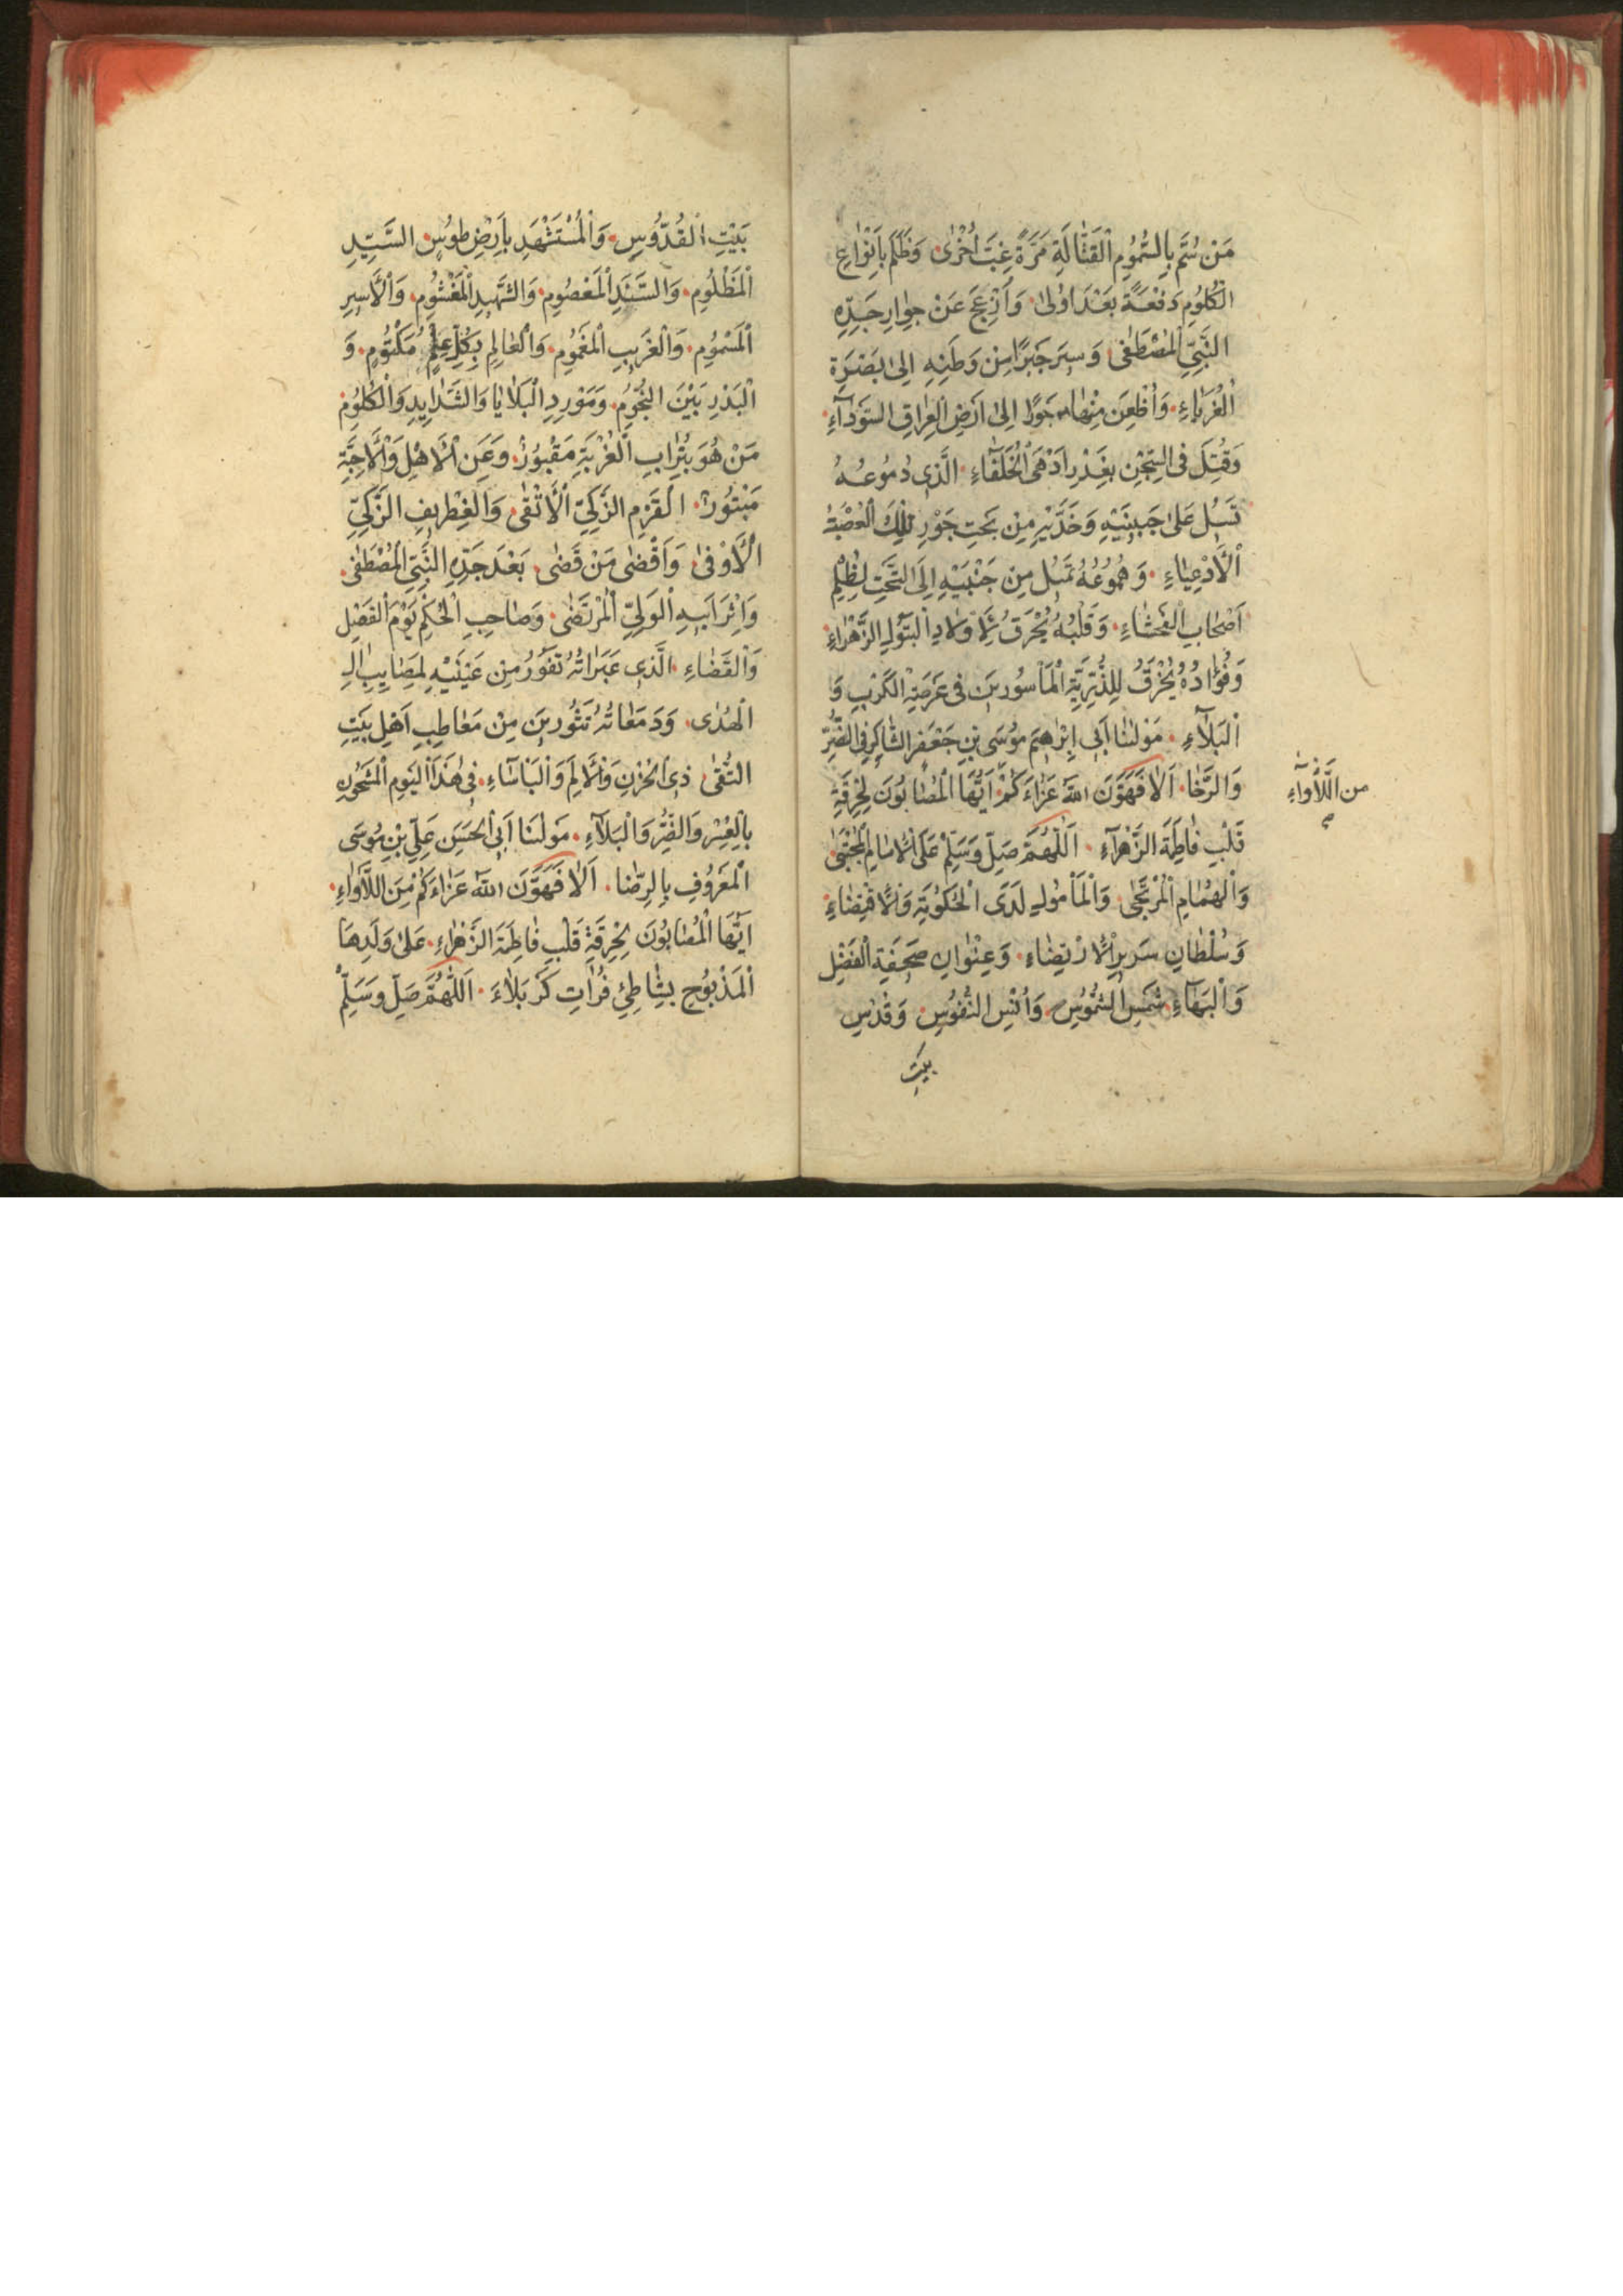 مَنْ سُمَّ بِالسُّمُومِ الْقَتَّالَةِ مَرَّةً غِبَّ اُخْرٰى وَظُلِمَ بِاَنْوَاعِ
الْكُلُومِ دَفْعَةً بَعْدَ اُولٰى وَاُزْعِجَ عَنْ جِوَارِ جَدِّهِ
النَّبِيِّ الْمُصْطَفٰى وَسِيرَ جَبْرًا مِنْ وَطَنِهِ اِلٰى بَصْرَةِ
الْغُرَبَاءِ وَاُظْعِنَ مِنْهَا جَوْرًا اِلٰى اَرْضِ الْعِرَاقِ السَّوْدَآءِ
وَقُتِلَ فِى السِّجْنِ بِغَدْرِ اَدْهَى الْخُلَفَاءِ الَّذِى دُمُوعُهُ
تَسِيلُ عَلٰى جَبِينَيْهِ وَخَدَّيْهِ مِنْ تَحْتِ جَوْرِ تِلْكَ الْعُصْبَةِ
الْاَدْعِيَاءِ وَهُمُوعُهُ تَمِيلُ مِنْ جَنْبَيْهِ اِلَى التَّحْتِ لِظُلْمِ
اَصْحَابِ الْفَحْشَاءِ وَقَلْبُهُ يُحْرَقُ لِاَوْلَادِ الْبَتُولِ الزَّهْرَاءِ
وَفُؤَادُهُ يُخْرَقُ لِلذُّرِّيَّةِ الْمَأْسُورِينَ فِى عَرْصَةِ الْكَرْبِ وَ
الْبَلَآءِ مَوْلٰنَا اَبِى اِبْرٰهِيمَ مُوسَى بْنِ جَعْفَرٍ الشَّاكِرِ فِى الضُّرِّ
وَالرَّخَا اَلَا فَهَوَّنَ اللّٰهُ عَزَاءَكُمْ اَيُّهَا الْمُصَابُونَ لِحُرْقَةِ
من اللَّأْوَآءِ
قَلْبِ فَاطِمَةَ الزَّهْرَآءِ اَللّٰهُمَّ صَلِّ وَسَلِّمْ عَلَى الْاِمَامِ الْمُجْتَبٰى
وَالْهُمَامِ الْمُرْتَجٰى وَالْمَأْمُولِ لَدَى الْحُكُومَةِ وَالْاِقْتِضَاءِ
وَسُلْطَانِ سَرِيرِ الْاِرْتِضَاءِ وَعِنْوَانِ صَحِيفَةِ الْفَضْلِ
وَالْبَهَآءِ شَمْسِ الشُّمُوسِ وَاُنْسِ النُّفُوسِ وَقُدْسِ
بيت
بَيْتِ الْقُدُّوسِ وَالْمُسْتَشْهَدِ بِاَرْضِ طُوسٍ السَّيِّدِ
الْمَظْلُومِ وَالسَّنَدِ الْمَعْصُومِ وَالشَّهِيدِ الْمَغْشُومِ وَالْاَسِيرِ
الْمَسْمُومِ وَالْغَرِيبِ الْمَغْمُومِ وَالْعَالِمِ بِكُلِّ عِلْمٍ مَكْتُومٍ وَ
الْبَدْرِ بَيْنَ النُّجُومِ وَمَوْرِدِ الْبَلَايَا وَالشَّدَايِدِ وَالْكُلُومِ
مَنْ هُوَ بِتُرَابِ الْغُرْبَةِ مَقْبُورٌ وَعَنِ الْاَهْلِ وَالْاَحِبَّةِ
مَبْتُورٌ الْقَرْمِ الزَّكِيِّ الْاَتْقٰى وَالْغِطْرِيفِ الزَّكِيِّ
الْاَوْفٰى وَاَقْضٰى مَنْ قَضٰى بَعْدَ جَدِّهِ النَّبِيِّ الْمُصْطَفٰى
وَاِثْرَ اَبِيهِ الْوَلِيِّ الْمُرْتَضٰى وَصَاحِبِ الْحُكْمِ يَوْمَ الْفَصْلِ
وَالْقَضَاءِ الَّذِى عَبَرَاتُهُ تَفُورُ مِنْ عَيْنَيْهِ لِمَصَايِبِ اٰلِ
الْهُدٰى وَدَمَعَاتُهُ تَثُورُ مِنْ مَعَاطِبِ اَهْلِ بَيْتِ
التُّقٰى ذِى الْحُزْنِ وَالْاَلَمِ وَالْبَأْسَاءِ فِى هٰذَا الْيَوْمِ الْمَشْحُونِ
بِالْعُسْرِ وَالضُّرِّ وَالْبَلَآءِ مَوْلٰنَا اَبِى الْحَسَنِ عَلِيِّ بْنِ مُوسَى
الْمَعْرُوفِ بِالرِّضَا اَلَا فَهَوَّنَ اللّٰهُ عَزَاءَكُمْ مِنَ اللَّأْوَاءِ
اَيُّهَا الْمُصَابُونَ لِحُرْقَةِ قَلْبِ فَاطِمَةَ الزَّهْرَاءِ عَلٰى وَلَدِهَا
الْمَذْبُوحِ بِشَاطِئِ فُرَاتِ كَرْبَلَاءَ اَللّٰهُمَّ صَلِّ وَسَلِّمْ